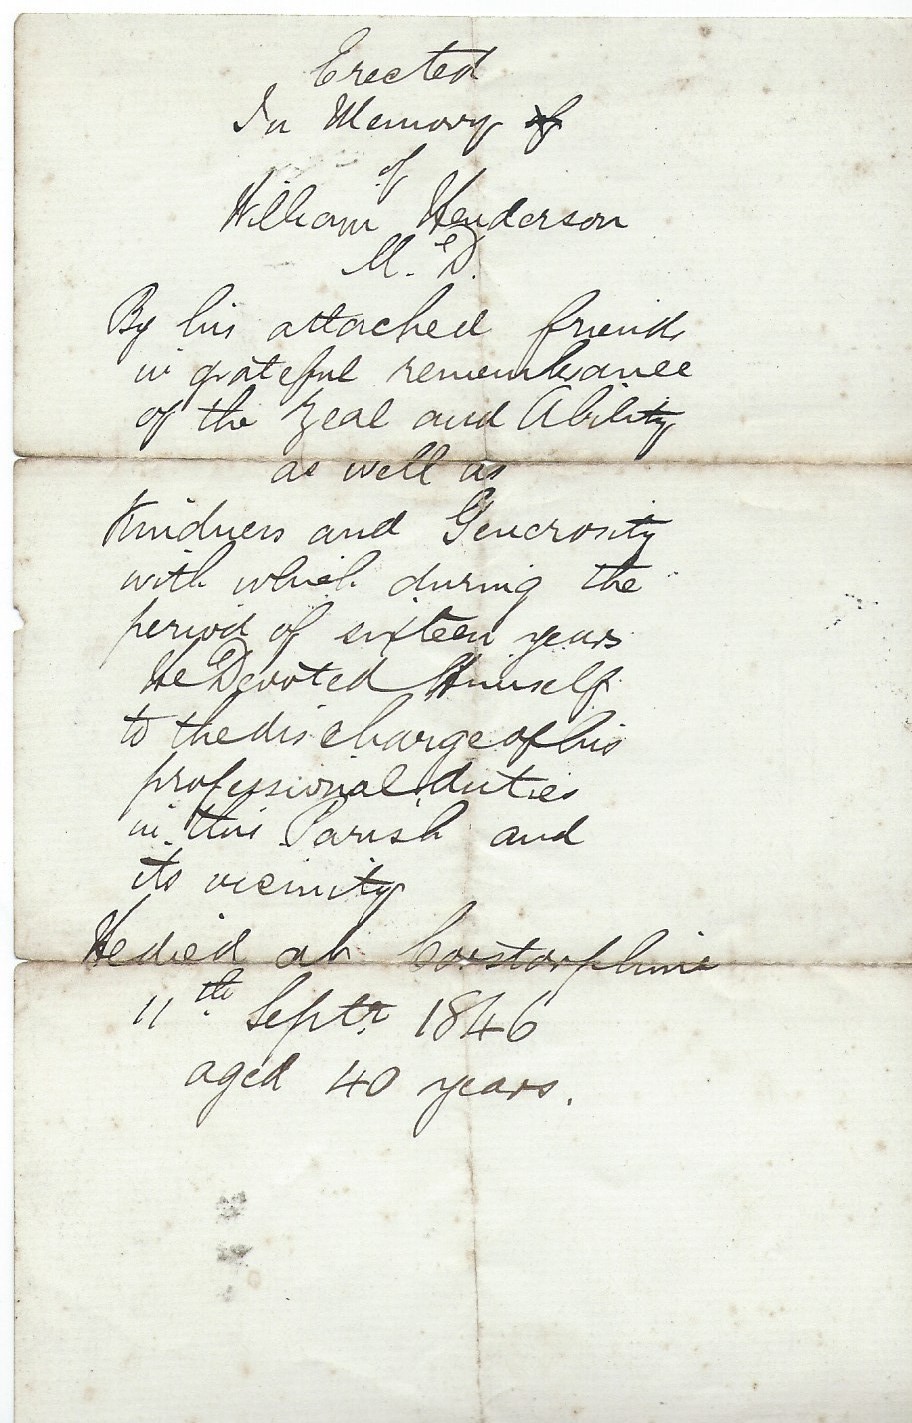 Erected
In Memory of
of
William Henderson
M.D.
By his attached friends
in grateful remembrance
of the Zeal and Ability
as well as
Kindness and Generosity
with which during the
period of sixteen years
He Devoted Himself
to the discharge of his
professional duties
in this Parish and
its vicinity
He died at Corstorphine
11th Septr 1846
aged 40 years.